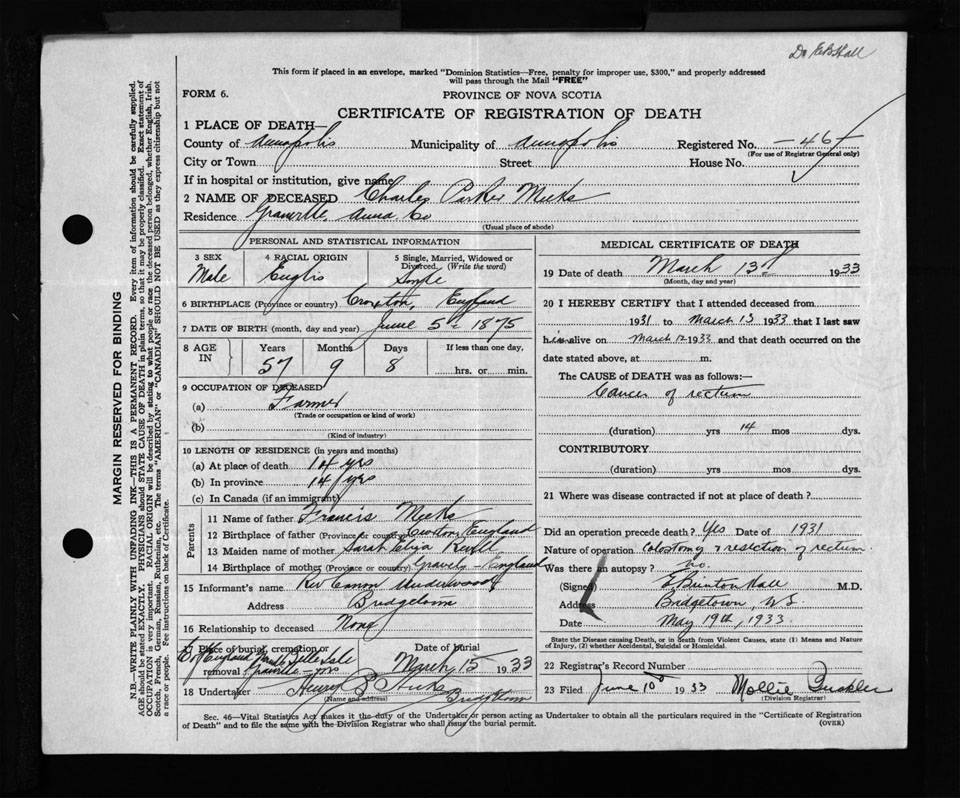 Dr Hall
This form if placed in an envelope, marked "Dominion Statistics—Free, penalty for improper use, $300," and properly addressed
will pass through the Mail "FREE"
FORM 6.
PROVINCE OF NOVA SCOTIA
CERTIFICATE OF REGISTRATION OF DEATH
1 PLACE OF DEATH—
County of Annapolis Municipality of Annapolis Registered No. —467
(For use of Registrar General only)
City or Town Street House No.
If in hospital or institution, give name
2 NAME OF DECEASED Charles Parker Meeks
Residence Granville, Anna. Co
(Usual place of abode)
PERSONAL AND STATISTICAL INFORMATION
3 SEX 4 RACIAL ORIGIN 5 Single, Married, Widowed or
Divorced. (Write the word)
Male Englis Single
6 BIRTHPLACE (Province or country) Croxton, England
7 DATE OF BIRTH (month, day and year) June 5th 1875
8 AGE IN Years Months Days If less than one day,
57 9 8 hrs. or min.
9 OCCUPATION OF DECEASED
(a) Farmer
(Trade or occupation or kind of work)
(b)
(Kind of industry)
10 LENGTH OF RESIDENCE (in years and months)
(a) At place of death 14 yrs
(b) In province 14 yrs
(c) In Canada (if an immigrant)
Parents
11 Name of father Francis Meeks
12 Birthplace of father (Province or country) England
13 Maiden name of mother Sarah Eliza
14 Birthplace of mother (Province or country) England
15 Informant's name Rev Canon Underwood
Address Bridgetown
16 Relationship to deceased None
17 Place of burial, cremation or removal Date of burial
C of England Belleisle
Granville March 15 1933
18 Undertaker Henry B Hicks
(Name and address) Bridgetown
MEDICAL CERTIFICATE OF DEATH
19 Date of death March 13th 1933
(Month, day and year)
20 I HEREBY CERTIFY that I attended deceased from
1931 to March 13 1933 that I last saw
him alive on March 12 1933 and that death occurred on the
date stated above, at m.
The CAUSE of DEATH was as follows:—
Cancer of rectum
(duration) yrs 14 mos dys.
CONTRIBUTORY
(duration) yrs mos dys.
21 Where was disease contracted if not at place of death?
Did an operation precede death? Yes Date of 1931
Nature of operation Colostomy & resection of rectum
Was there an autopsy? no.
(Signed) Brinton Hall M.D.
Address Bridgetown, N.S.
Date May 19th, 1933.
State the Disease causing Death, or in death from Violent Causes, state (1) Means and Nature
of Injury, (2) whether Accidental, Suicidal or Homicidal.
22 Registrar's Record Number
23 Filed June 10th 1933 Mollie Buckler
(Division Registrar)
Sec. 46—Vital Statistics Act makes it the duty of the Undertaker or person acting as Undertaker to obtain all the particulars required in the "Certificate of Registration
of Death" and to file the same with the Division Registrar who shall issue the burial permit. (OVER)
MARGIN RESERVED FOR BINDING
N.B.—WRITE PLAINLY WITH UNFADING INK—THIS IS A PERMANENT RECORD. Every item of information should be carefully supplied.
AGE should be stated EXACTLY. PHYSICIANS should STATE CAUSE OF DEATH in plain terms, so that it may be properly classified. Exact statement of
OCCUPATION is very important. RACIAL ORIGIN will be described by stating to what people or race the deceased person belonged, whether English, Irish,
Scotch, French, German, Russian, Ruthenian, etc. The terms "AMERICAN" or "CANADIAN" SHOULD NOT BE USED as they express citizenship but not
a race or people. Fee instructions on back of Certificate.